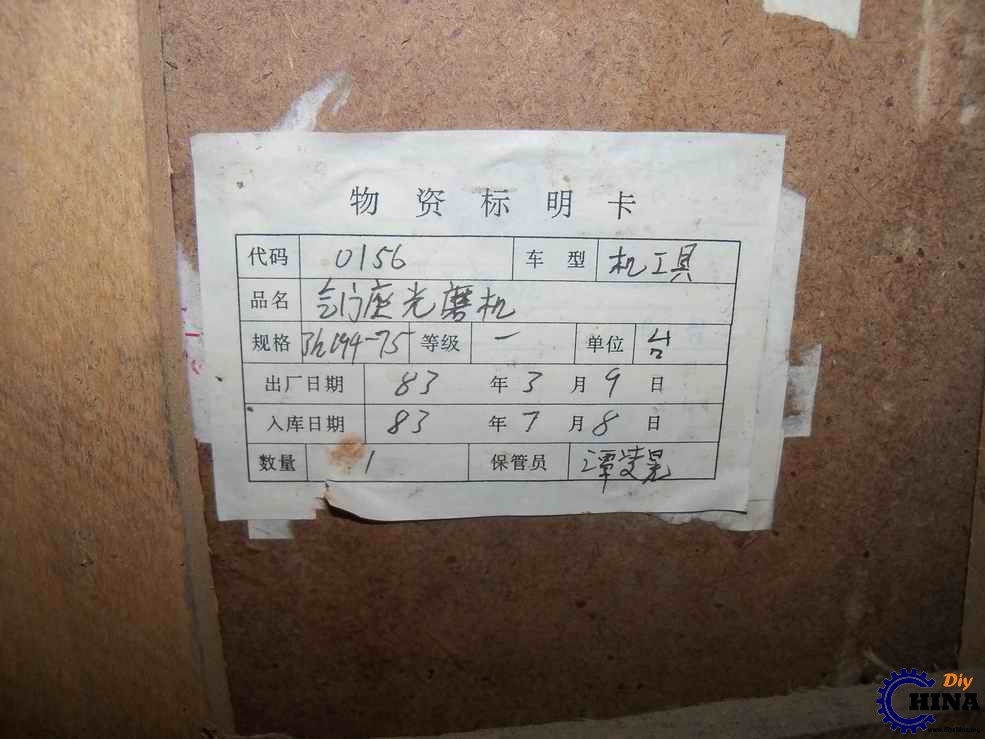 物资标明卡
代码 0156 车型 机工具
品名 气门座光磨机
规格 3h 194-75 等级 一 单位 台
出厂日期 83 年 3 月 9 日
入库日期 83 年 7 月 8 日
数量 1 保管员 谭
Diy
CHINA